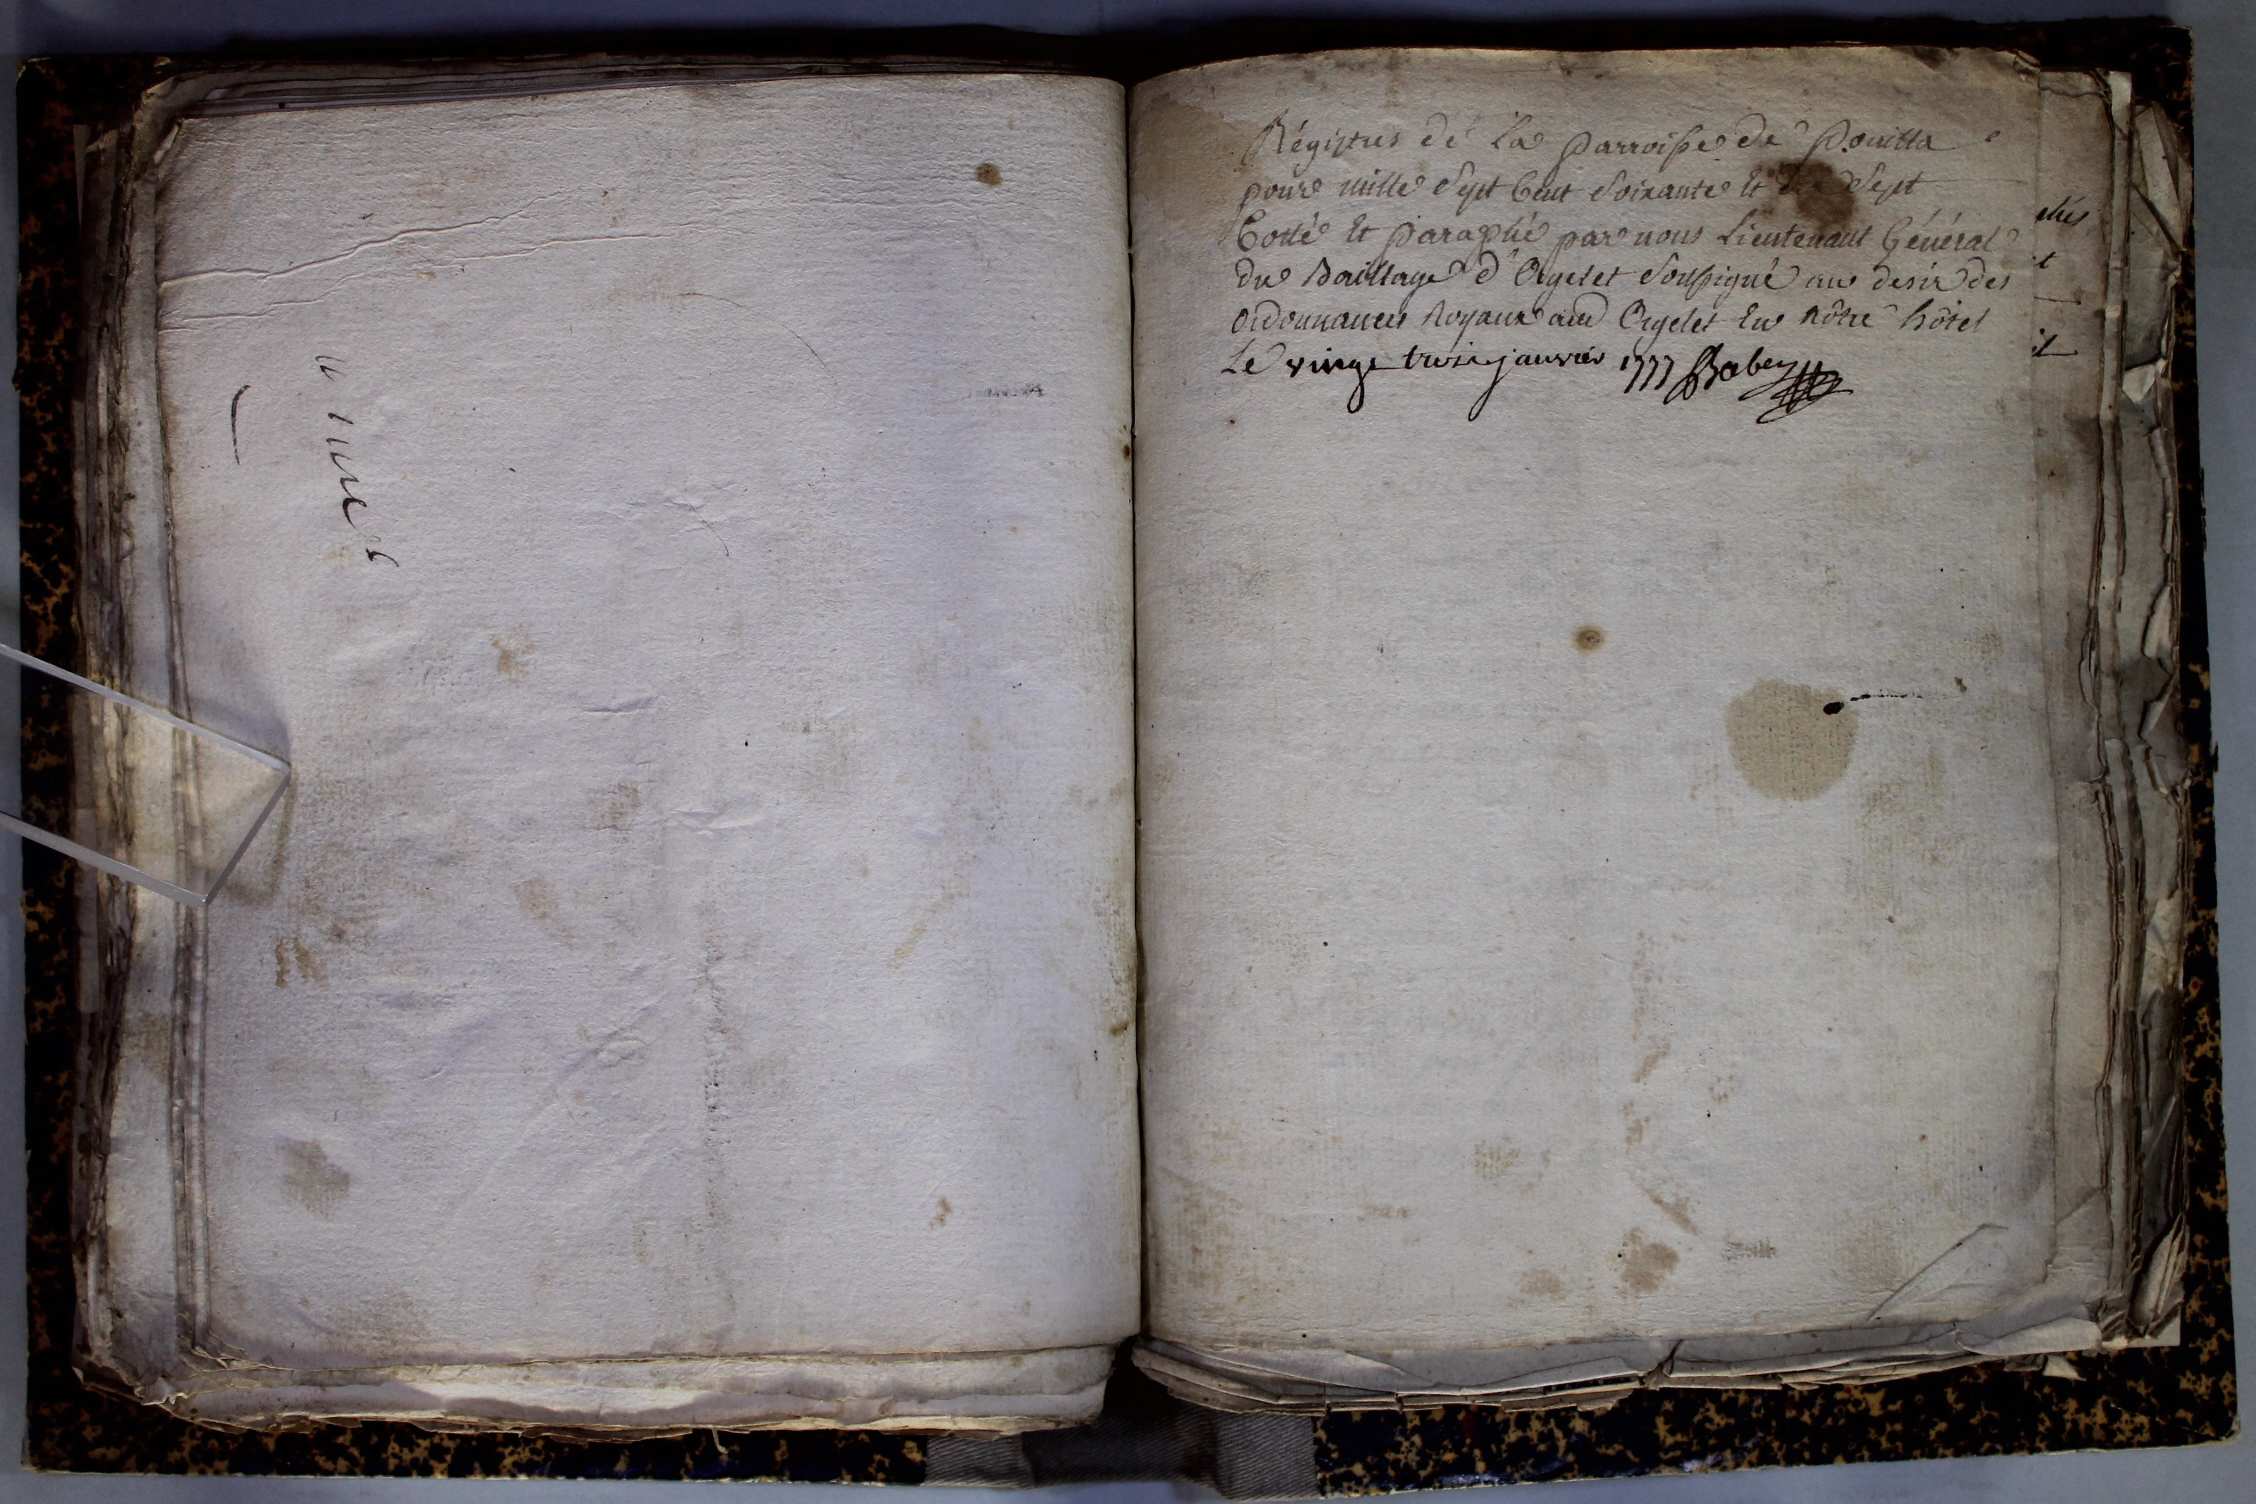 Régistres de La parroisse de Pouilla
pour mille Sept Cent Soixante Et dix Sept
Cotté Et paraphé par nous Lieutenant Général
du Baillage d'Orgelet Soussigné au desir des
ordonnances Royaux aud Orgelet En nôtre hôtel
Le vingt trois janvier 1777 Babey